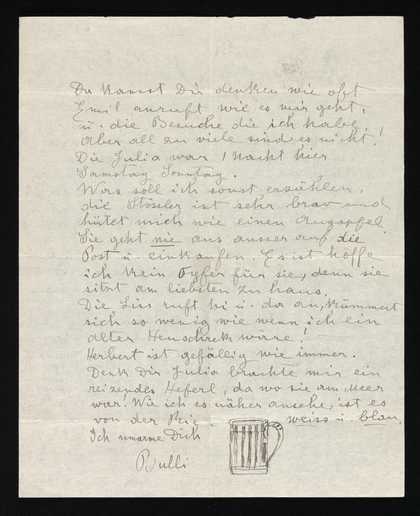 Du kannst Dir denken wie oft
Emil anruft wie es mir geht,
u. die Besuche die ich habe!
Aber all zu viele sind es nicht!
Die Julia war 1 Nacht hier
Samstag Sonntag.
Was soll ich sonst erzählen,
die Stösler ist sehr brav und
hütet mich wie einen Augapfel
Sie geht nie aus ausser auf die
Post u. einkaufen. Es ist hoffe
ich kein Opfer für sie, denn sie
sitzt am liebsten zu haus.
Die Liss ruft hi u. da an, kümmert
sich so wenig wie wenn ich ein
alter Heuschreck wäre!
Herbert ist gefällig wie immer.
Denk Dir Julia brachte mir ein
reizendes Heferl, da wo sie am Meer
war! Wie ich es näher ansehe, ist es
von der
weiss u. blau.
Ich umarme Dich
Bulli